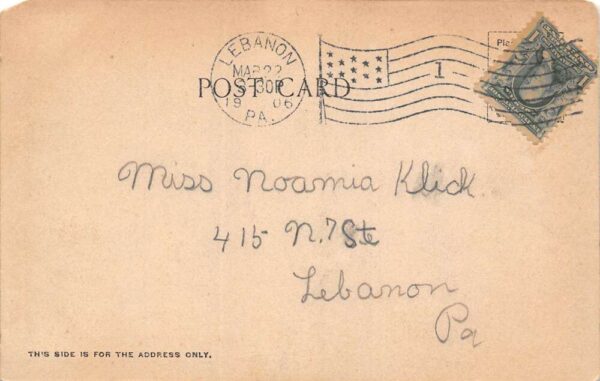 LEBANON
MAR 22
30P
1906
PA.
1
POST CARD
Miss Noamia Klick
415 N. 7 Ste
Lebanon
Pa
THIS SIDE IS FOR THE ADDRESS ONLY.